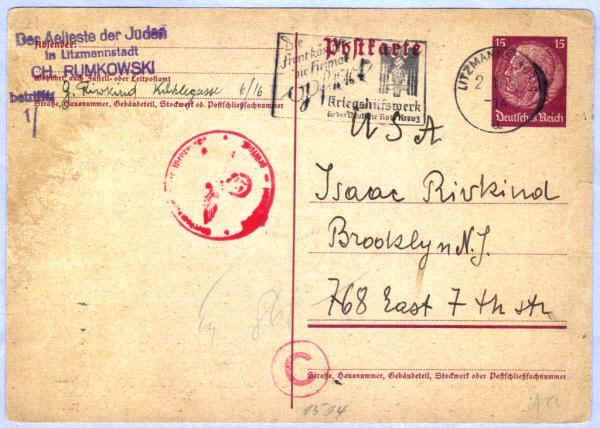 Der Aelteste der Juden
in Litzmannstadt
CH. RUMKOWSKI
Absender:
Wohnort, auch Zustell- oder Leitpostamt
G. Rivkind 6/16
Straße, Hausnummer, Gebäudeteil, Stockwerk od. Postschließfachnummer
betrifft
1/
Postkarte
Kriegshilfswerk
für das Deutsche Rote Kreuz
LITZMANNSTADT
2
15 15
Deutsches Reich
USA
Isaac Rivkind
Brooklyn N.J.
768 East 7 th str
C
Straße, Hausnummer, Gebäudeteil, Stockwerk oder Postschließfachnummer
1504